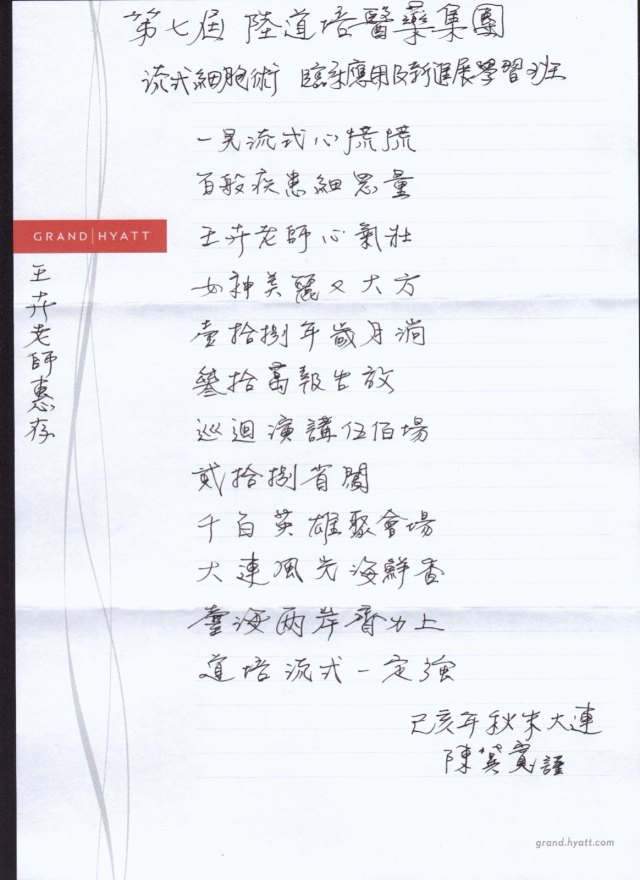 第七届 陸道培醫藥集團
流式細胞術 臨床應用及新進展學習班
一見流式心慌慌
百般疾患細思量
GRAND|HYATT
王卉老師心氣壯
女神美麗又大方
壹拾捌年歲月淌
叄拾萬報告放
巡迴演講伍佰場
貳拾捌省闖
千百英雄聚會場
大連風光海鮮香
臺海两岸齊力上
道培流式一定強
王卉老師惠存
己亥年秋末大連
陳 謹
grand.hyatt.com